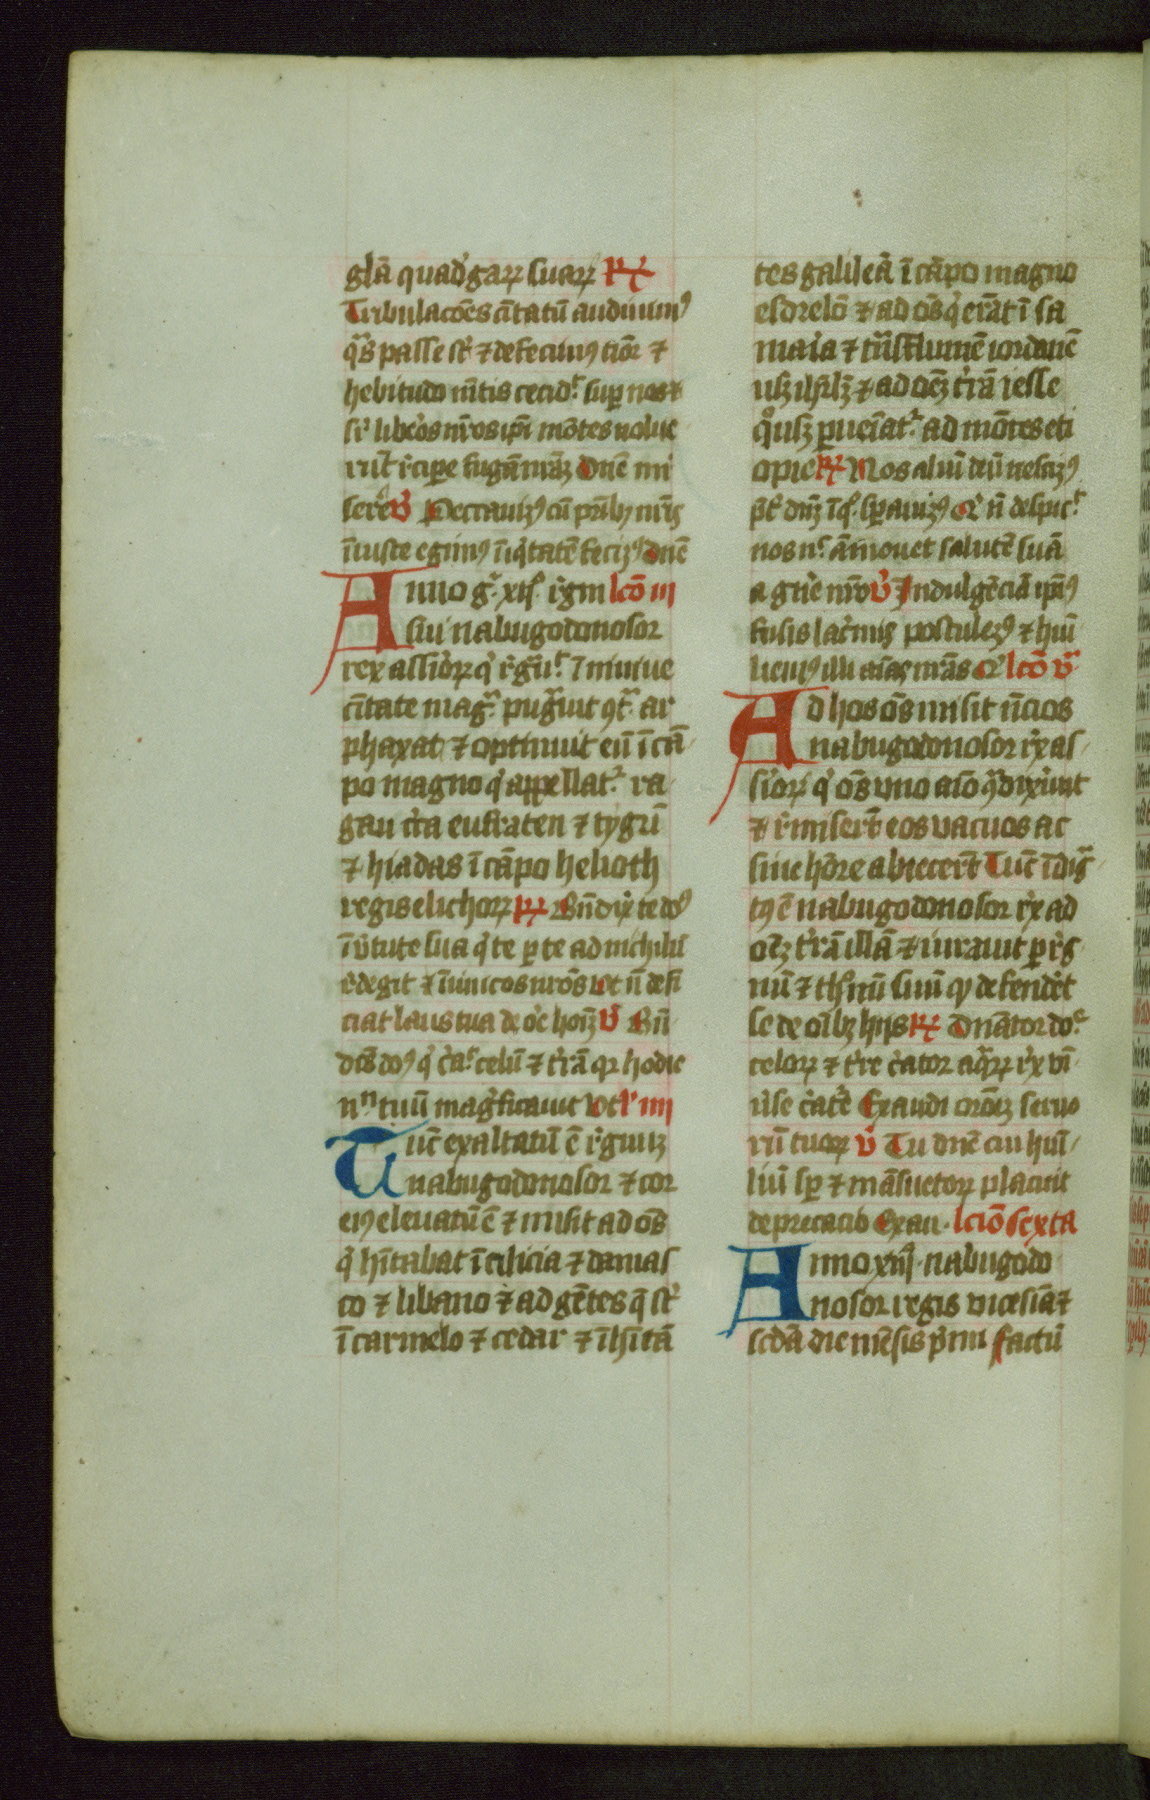 glā quadͥgaꝝ suaꝝ ℟
Tribulacōes cītatū audiuimꝰ
qͣs passe sᷓt ⁊ defecimꝰ tiōr ⁊
hebitudo mētis cecidᷓ sup nos ⁊
sͬ libeͦos nr̄os ipī mōtes nolue
rūt rͥcipere fugā nrāꝫ Dn̄e mi
serͤe ℣ Peccauimꝰ cū pr̄ibꝫ nr̄is
īiuste egimꝰ īiqͥtatē fecimꝰ Dn̄e
Anno gͦ xijͦ rͤgni lcō iij
sui nabugodonosor
rex assioͬꝝ qͥ rͤgūᷓ ī niniue
cītate magͣ pugͣuit ꝯtͣ ar
phaxat ⁊ optinuit eū ī cā
po magno qͥ appellatᷓ ra
gau cͥca eufraten ⁊ tygrī
⁊ hiadas ī cāpo helioth
regis elichoꝝ ℟ Bn̄dix̄ te doꝰ
ī v̄tute sua qͥ te per te ad nichilū
rͤdegit īimicos nr̄os Vt nō defi
ciat laus tua de oͤe hoīꝫ ℣ Bn̄
dc̄s doꝰ qͥ cͤaᷓ celū ⁊ tͤrā qꝛ hodie
nͫᷓ tuū magͥficauit Vt lͦ iiij
Tūc exaltatū ē rͤgnūꝫ
nabugodonosor ⁊ cor
eiꝰ eleuatū ē ⁊ misit ad oēs
qͥ hītabāt ī cilicia ⁊ damas
co ⁊ libano ⁊ ad gētes q̄ sᷓt
ī carmelo ⁊ cedar ⁊ īhītā
tes galileā ī cāpo magno
esdrelō ⁊ ad oēs qͥ erāt ī sa
maͥa ⁊ trās flumē iordanē
usqꝫ ihrl̄m ⁊ ad oēꝫ tͤrā iesse
qͦusqꝫ perueīatᷓ ad mōtes eti
opie ℟ Nos aliū deū nescimꝰ
pͤt dn̄ꝫ ī qͦ sperauimꝰ Qͥ nō despicᷓ
nos nͨ āmouet salutē suā
a gn̄e nr̄o ℣ Indulgēciā ipīꝰ
fusis lacͥmis postulemꝰ ⁊ humi
liemꝰ illi aīas nrās Qͥ lcō vͣ
Ad hos oēs misit nūcios
nabugodonosor rͤx as
sioͬꝝ qͥ oēs uno aīo ꝯͣdixͤūt
⁊ rͤmiserūt eos vacuos ac
sine hōore abiecerūt Tūc īdigͣ
tꝰ ē nabugodonosor rͤx ad
oēꝫ tͤrā illā ⁊ iurauit per rͤg
nū ⁊ thͦnū suū qꝫ defendͤet
se de oībꝫ hijs ℟ Dn̄ator doͤ
celoꝝ ⁊ tͤre cͤator aqͣꝝ rͤx vni
uͤse cͤatͤe Exaudi orōeꝫ seruo
rū tuoꝝ ℣ Tu dn̄e cui humi
liū sper ⁊ māsuetoꝝ placuit
deprecacio Exau. lciō sexta
Anno xiijͦ nabugodo
nosor regis vicesiā ⁊
scdā die mēsis pͥmi factū